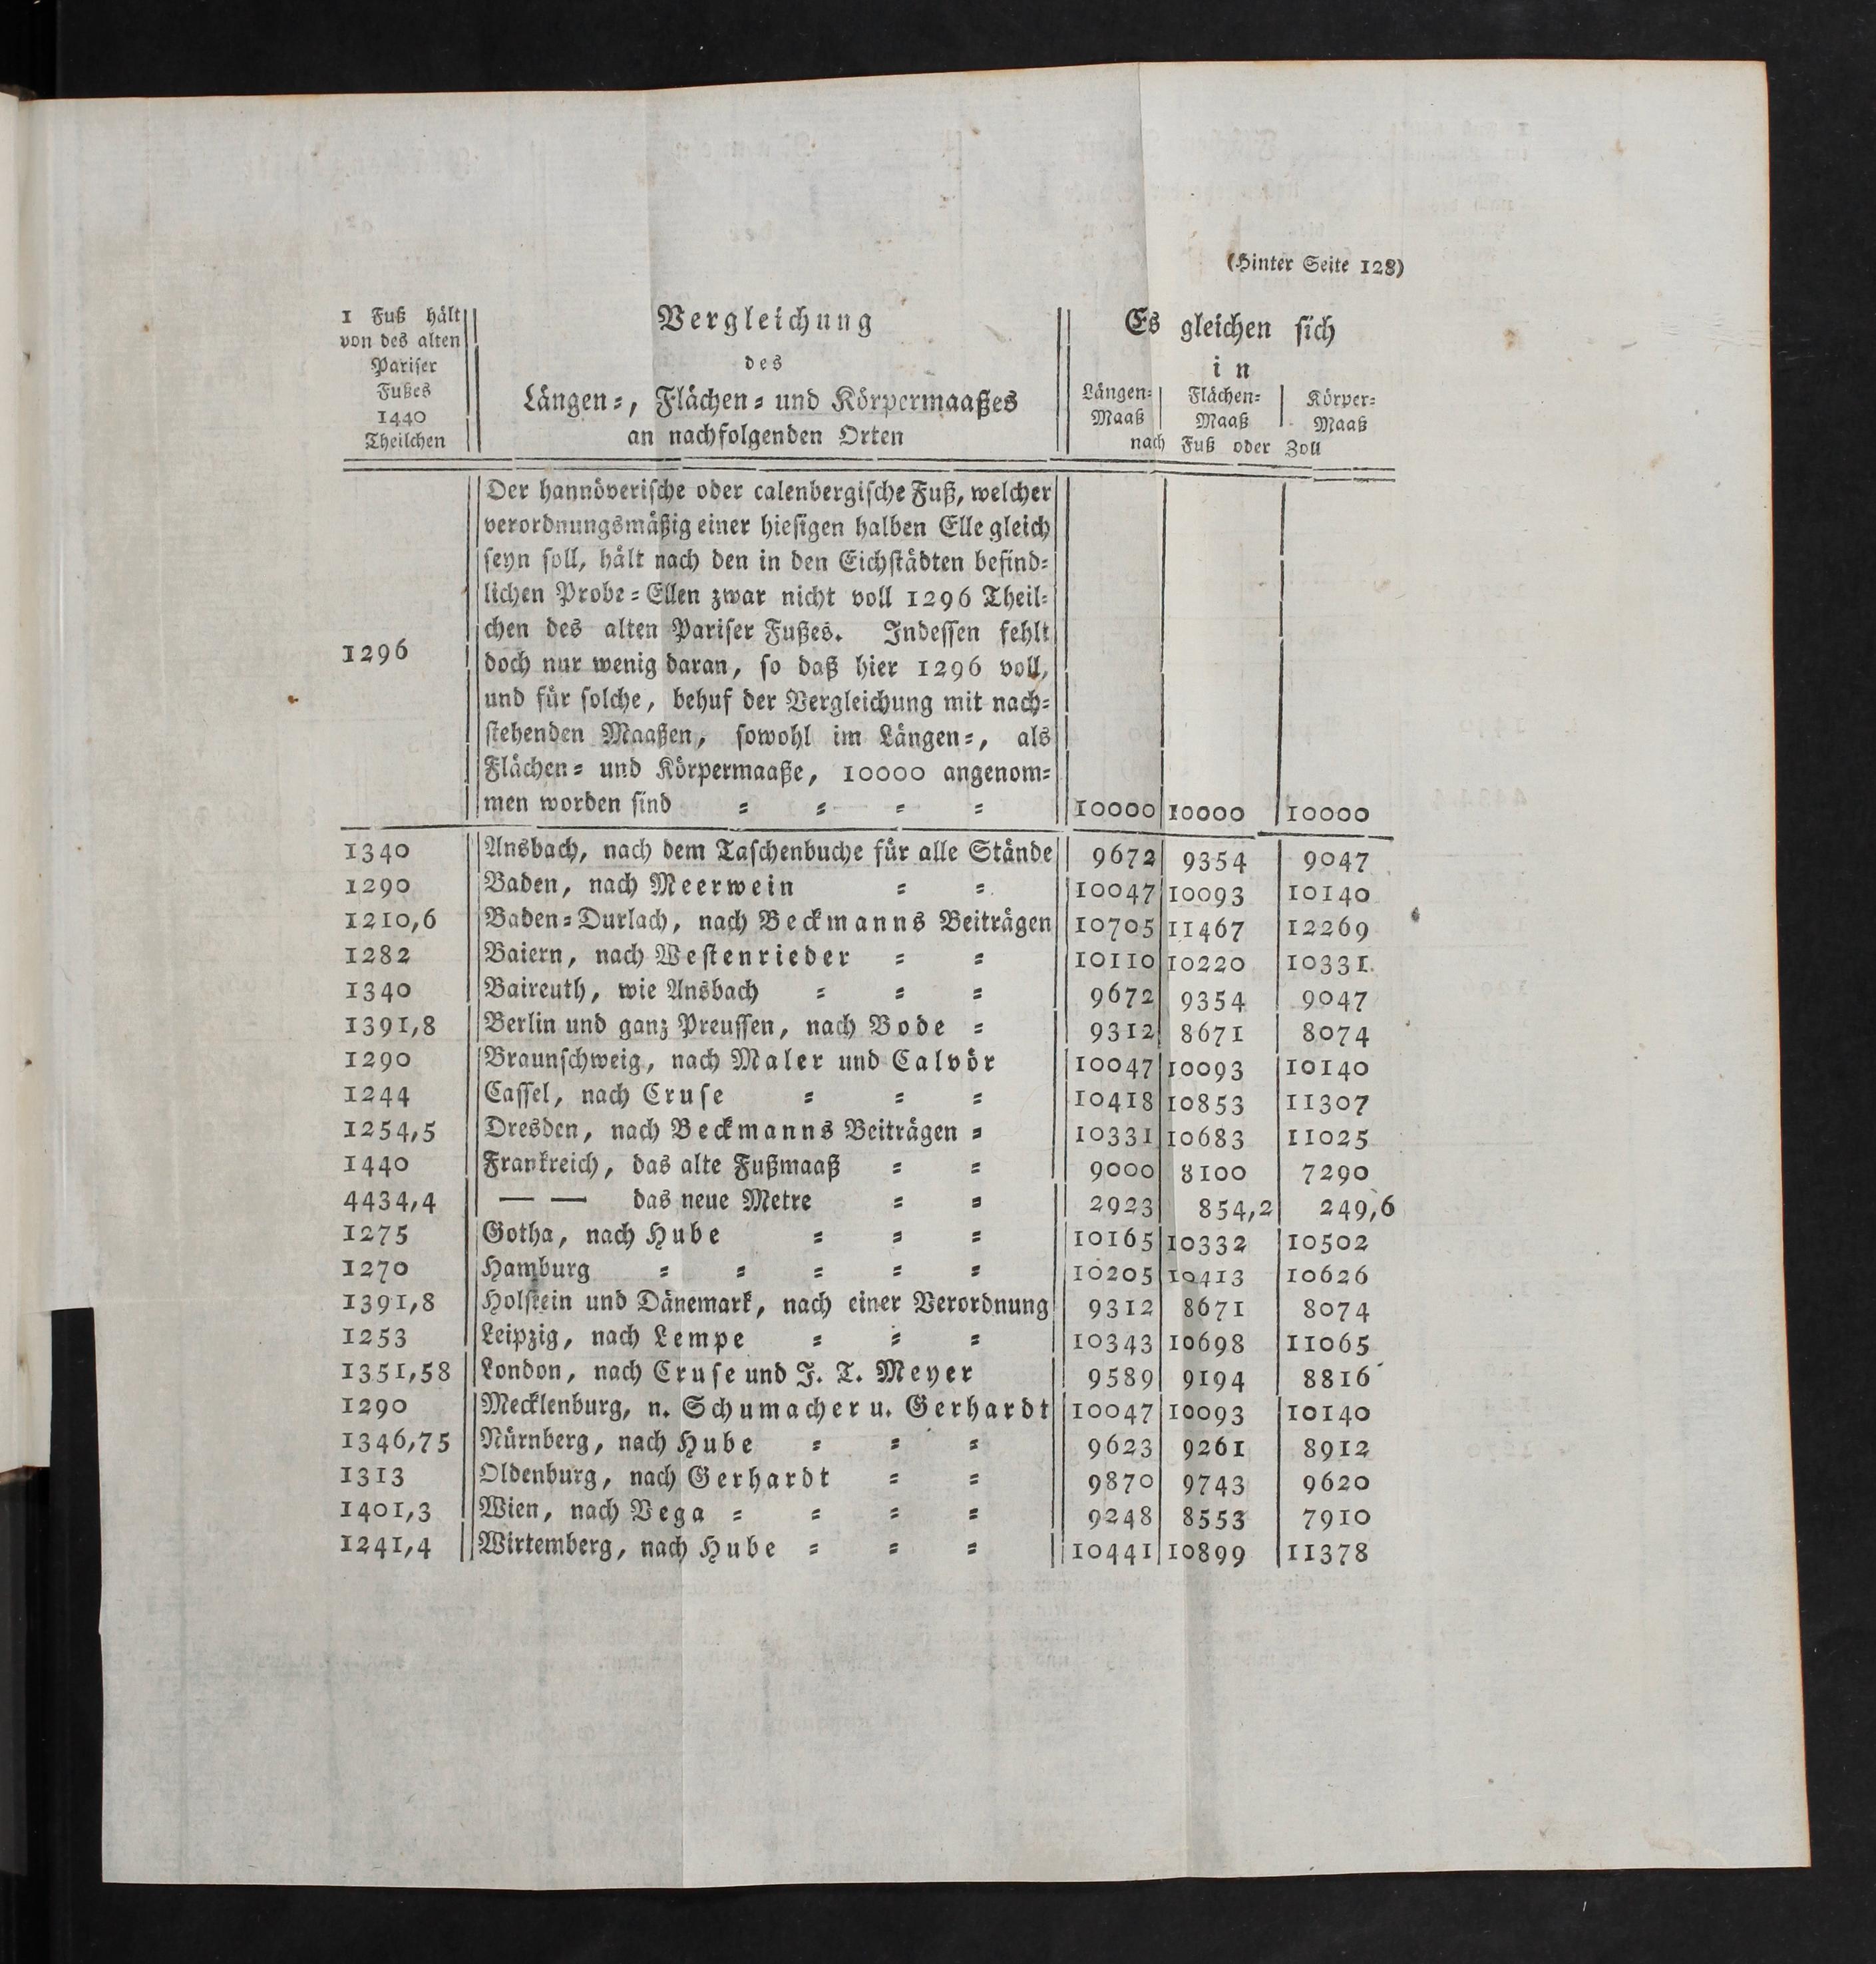 (Hinter Seite 128)
1 Fuß hält von des alten Pariser Fußes 1440 Theilchen
Vergleichung
des
Längen-, Flächen- und Körpermaaßes
an nachfolgenden Orten
Es gleichen sich
in
Längen-Maaß | Flächen-Maaß | Körper-Maaß
nach Fuß oder Zoll
Der hannöverische oder calenbergische Fuß, welcher
verordnungsmäßig einer hiesigen halben Elle gleich
seyn soll, hält nach den in den Eichstädten befind-
lichen Probe-Ellen zwar nicht voll 1296 Theil-
chen des alten Pariser Fußes. Indessen fehlt
1296 doch nur wenig daran, so daß hier 1296 voll,
und für solche, behuf der Vergleichung mit nach-
stehenden Maaßen, sowohl im Längen-, als
Flächen- und Körpermaaße, 10000 angenom-
men worden sind = = = = 10000 10000 10000
1340 Ansbach, nach dem Taschenbuche für alle Stände 9672 9354 9047
1290 Baden, nach Meerwein = = 10047 10093 10140
1210,6 Baden-Durlach, nach Beckmanns Beiträgen 10705 11467 12269
1282 Baiern, nach Westenrieder = = 10110 10220 10331
1340 Baireuth, wie Ansbach = = = 9672 9354 9047
1391,8 Berlin und ganz Preussen, nach Bode = 9312 8671 8074
1290 Braunschweig, nach Maler und Calvör 10047 10093 10140
1244 Cassel, nach Cruse = = = 10418 10853 11307
1254,5 Dresden, nach Beckmanns Beiträgen = 10331 10683 11025
1440 Frankreich, das alte Fußmaaß = = 9000 8100 7290
4434,4 — — das neue Metre = = 2923 854,2 249,6
1275 Gotha, nach Hube = = = 10165 10332 10502
1270 Hamburg = = = = = 10205 10413 10626
1391,8 Holstein und Dänemark, nach einer Verordnung 9312 8671 8074
1253 Leipzig, nach Lempe = = = 10343 10698 11065
1351,58 London, nach Cruse und J. T. Meyer 9589 9194 8816
1290 Mecklenburg, n. Schumacher u. Gerhardt 10047 10093 10140
1346,75 Nürnberg, nach Hube = = = 9623 9261 8912
1313 Oldenburg, nach Gerhardt = = 9870 9743 9620
1401,3 Wien, nach Vega = = = = 9248 8553 7910
1241,4 Wirtemberg, nach Hube = = = 10441 10899 11378